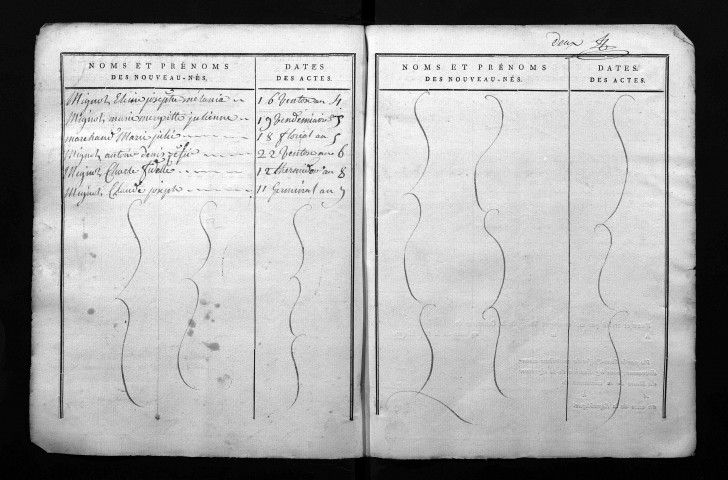 NOMS ET PRÉNOMS
DES NOUVEAU-NÉS.
DATES
DES ACTES.
Mignot josephe mélanie 16 Ventose an 4
Mignot marie julienne 19 Vendemiaire 5
marchand Marie julie 18 floreal an 5
Mignot antoine denis 22 Ventose an 6
Mignot Charle fidelle 12 thermidor an 8
Mignot Claude joseph 11 Germinal an 9
deux
NOMS ET PRÉNOMS
DES NOUVEAU-NÉS.
DATES.
DES ACTES.